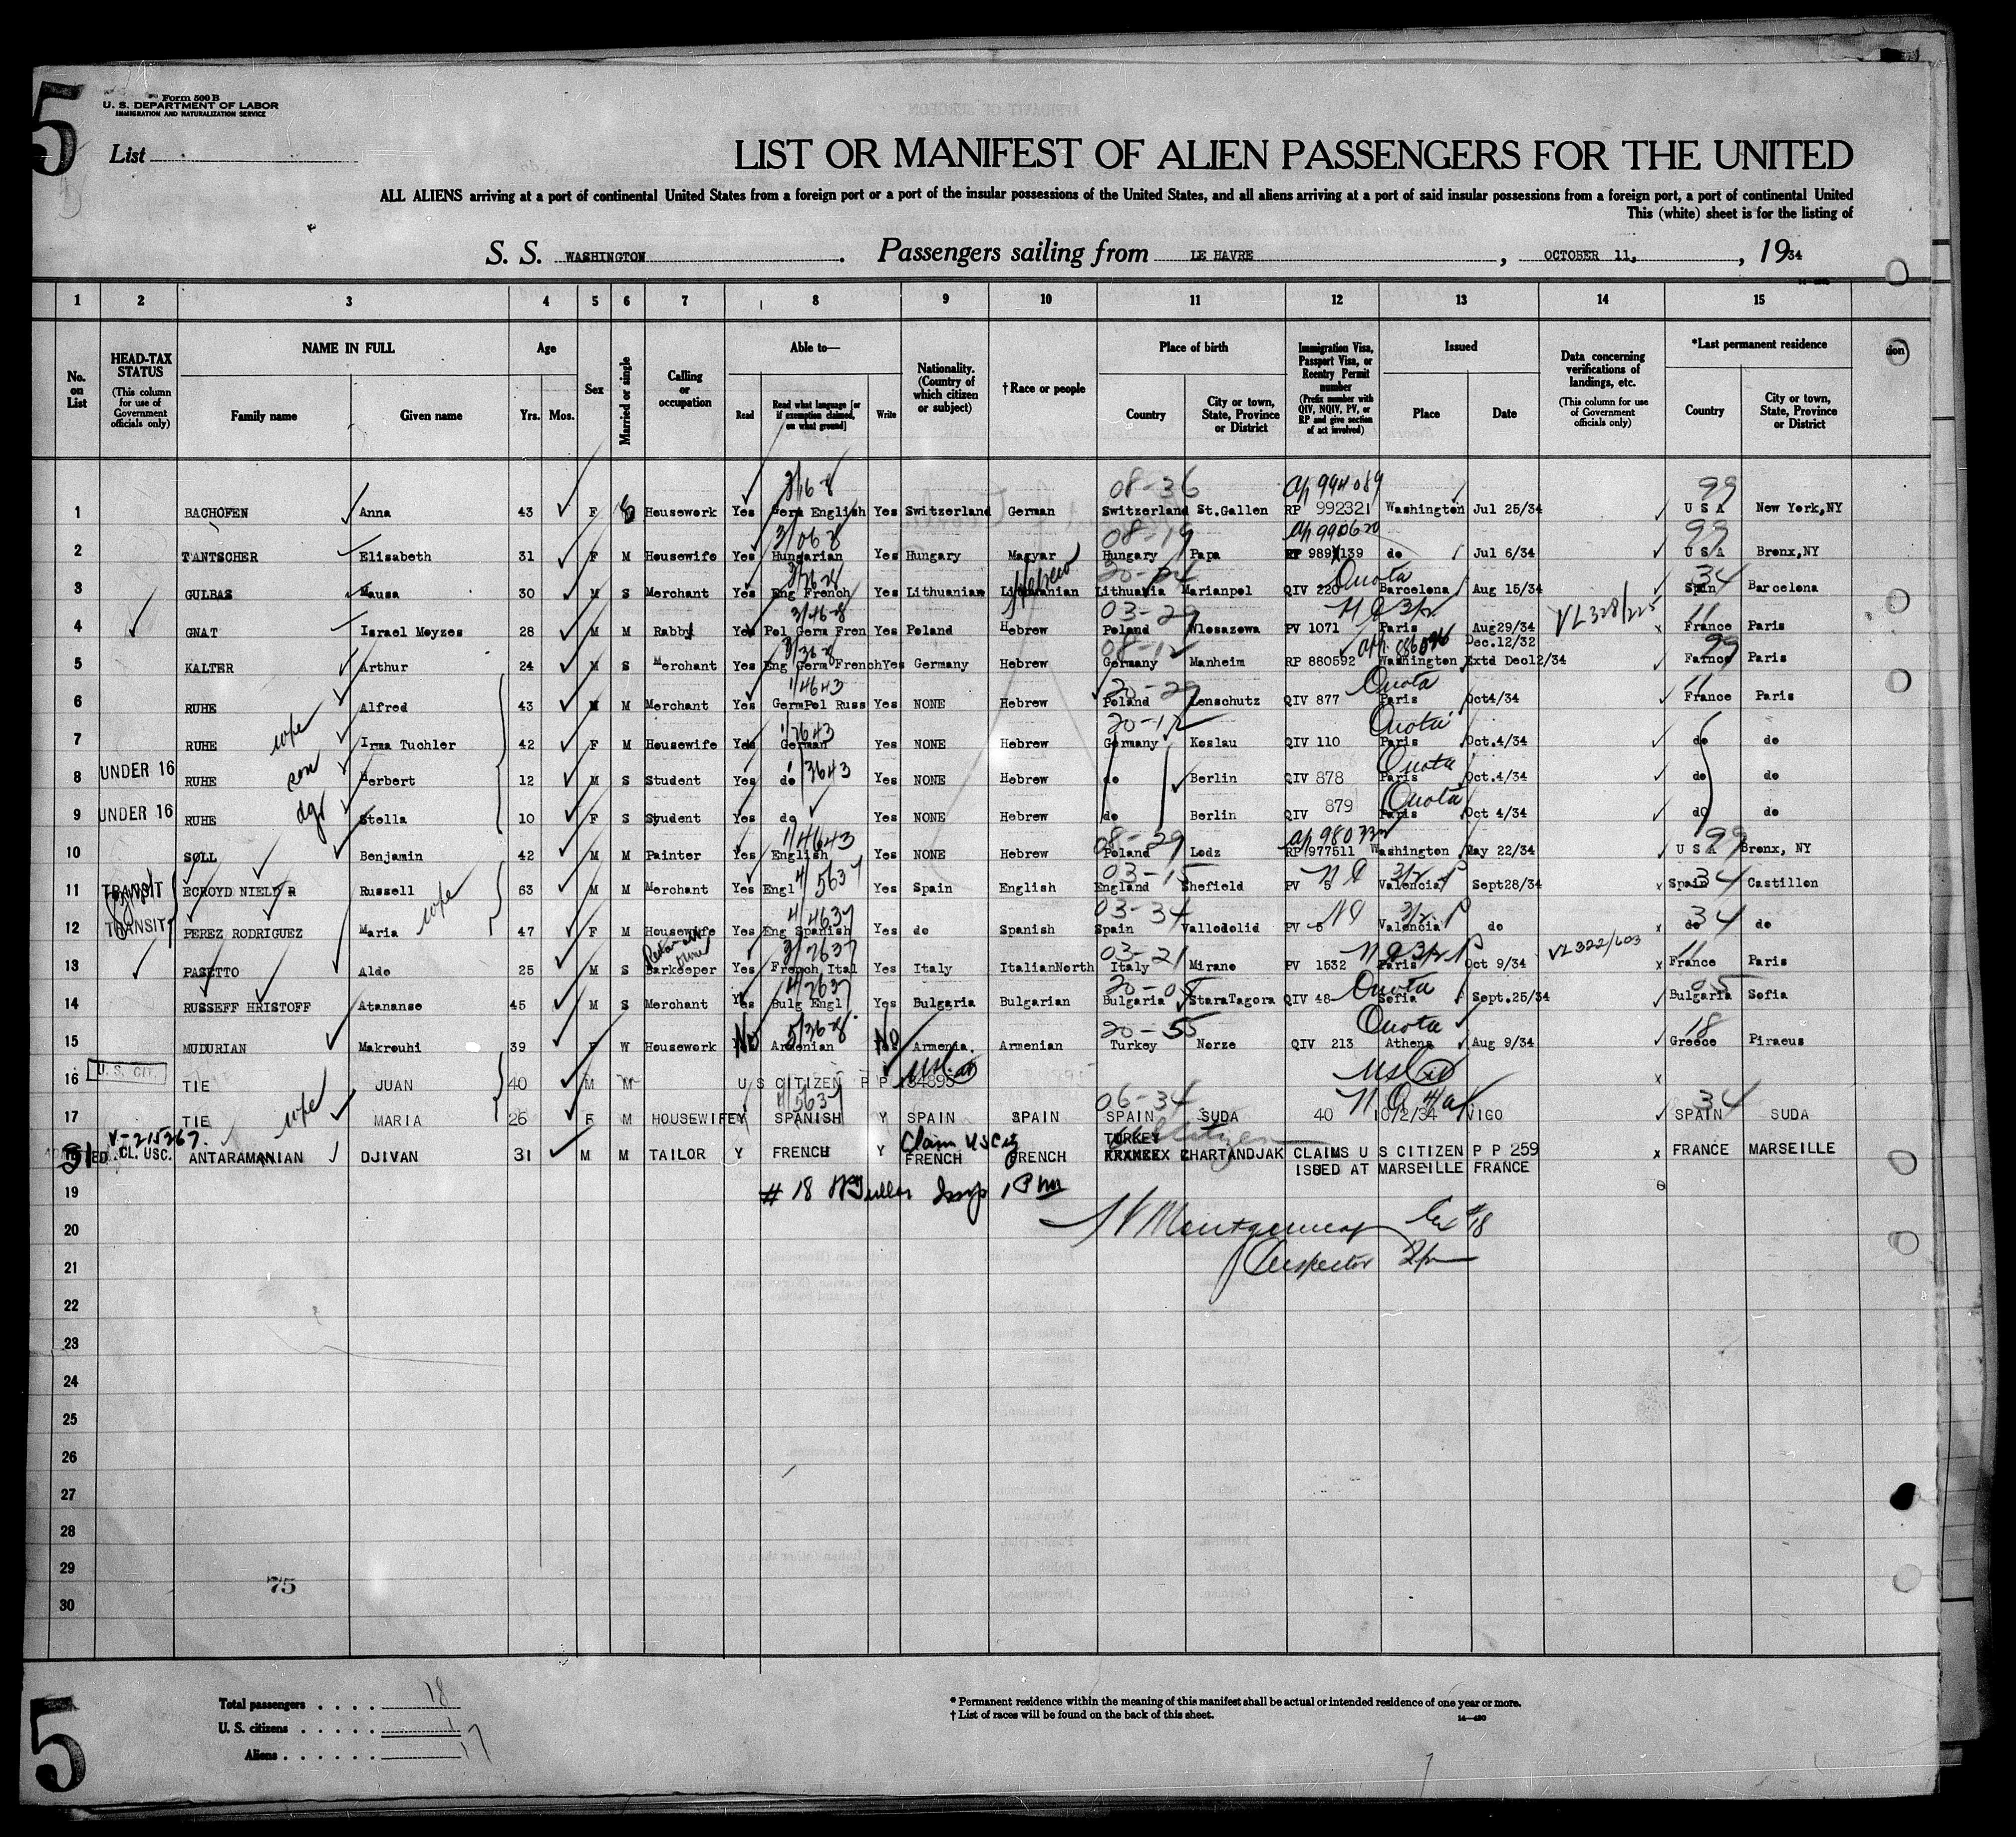 5
Form 500 B
U. S. DEPARTMENT OF LABOR
IMMIGRATION AND NATURALIZATION SERVICE
List
LIST OR MANIFEST OF ALIEN PASSENGERS FOR THE UNITED
ALL ALIENS arriving at a port of continental United States from a foreign port or a port of the insular possessions of the United States, and all aliens arriving at a port of said insular possessions from a foreign port, a port of continental United
This (white) sheet is for the listing of
S. S. WASHINGTON. Passengers sailing from LE HAVRE, OCTOBER 11, 1934
1 2 3 4 5 6 7 8 9 10 11 12 13 14 15
No. on List
HEAD-TAX STATUS (This column for use of Government officials only)
NAME IN FULL Family name Given name
Age Yrs. Mos.
Sex
Married or single
Calling or occupation
Able to— Read Read what language [or if exemption claimed, on what ground] Write
Nationality. (Country of which citizen or subject)
† Race or people
Place of birth Country City or town, State, Province or District
Immigration Visa, Passport Visa, or Reentry Permit number (Prefix number with QIV, NQIV, PV, or RP and give section of act involved)
Issued Place Date
Data concerning verifications of landings, etc. (This column for use of Government officials only)
*Last permanent residence Country City or town, State, Province or District
3/16-8 08-36 99
1 BACHOFEN Anna 43 F Housework Yes Germ English Yes Switzerland German Switzerland St.Gallen RP 992321 Washington Jul 25/34 U S A New York,NY
08-19 990620 99
2 TANTSCHER Elisabeth 31 F M Housewife Yes Hungarian Yes Hungary Magyar Hungary Papa RP 989139 do Jul 6/34 U S A Bronx,NY
Hebrew Quota 34
3 GULBAS Mausa 30 M S Merchant Yes Eng French Yes Lithuanian Lithuanian Lithuania Marianpol QIV 220 Barcelona Aug 15/34 Spin Barcelona
3/46-8 03-29 VL 328/225 11
4 GNAT Israel Moyzes 28 M M Rabby Yes Pol Germ Fren Yes Poland Hebrew Poland Wloszowa PV 1071 Paris Aug29/34 France Paris
08-12 Dec.12/32 99
5 KALTER Arthur 24 M S Merchant Yes Eng Germ French Yes Germany Hebrew Germany Manheim RP 880592 Washington Extd Dec12/34 Farnce Paris
1/4643 20-29 Quota 11
6 RUHE Alfred 43 M M Merchant Yes GermPol Russ Yes NONE Hebrew Poland Lenschutz QIV 877 Paris Oct4/34 France Paris
20-12 Quota
7 RUHE wife Irma Tuchler 42 F M Housewife Yes German Yes NONE Hebrew Germany Koslau QIV 110 Paris Oct.4/34 do do
Quota
8 UNDER 16 RUHE son Herbert 12 M S Student Yes do 3643 Yes NONE Hebrew do Berlin QIV 878 Paris Oct.4/34 do do
Quota
9 UNDER 16 RUHE dgr Stella 10 F S Student Yes do Yes NONE Hebrew do Berlin QIV 879 Paris Oct 4/34 do do
1/4643 08-29 99
10 SOLL Benjamin 42 M M Painter Yes English Yes NONE Hebrew Poland Lodz RP 977511 Washington May 22/34 U S A Bronx, NY
4/5637 03-15 34
11 TRANSIT ECROYD NIELD R Russell 63 M M Merchant Yes Engl Yes Spain English England Shefield PV 5 Valencia Sept28/34 Spain Castillon
4/4637 03-34 34
12 TRANSIT PEREZ RODRIGUEZ Maria wife 47 F M Housewife Yes Eng Spanish Yes do Spanish Spain Valledolid PV 6 Valencia do do do
03-21 VL 322/603 11
13 PASETTO Aldo 25 M S Barkeeper Yes French Ital Yes Italy ItalianNorth Italy Mirano PV 1532 Paris Oct 9/34 France Paris
4/2637 20-05 Quota 05
14 RUSSEFF HRISTOFF Atananse 45 M S Merchant Yes Bulg Engl Yes Bulgaria Bulgarian Bulgaria StaraTagora QIV 48 Sofia Sept.25/34 Bulgaria Sofia
5/36-8 20-55 Quota 18
15 MUDURIAN Makrouhi 39 F W Housework No Armenian No Armenia Armenian Turkey Norze QIV 213 Athens Aug 9/34 Greece Piraeus
16 U. S. CIT. TIE JUAN 40 M M U S CITIZEN P P 134895
4/5637 06-34 34
17 TIE wife MARIA 26 F M HOUSEWIFE Y SPANISH Y SPAIN SPAIN SPAIN SUDA 40 10/2/34 VIGO SPAIN SUDA
V-215267. Claim US Cit TURKEY
CL. USC. ANTARAMANIAN DJIVAN 31 M M TAILOR Y FRENCH Y FRENCH FRENCH CHARTANDJAK CLAIMS U S CITIZEN P P 259 FRANCE MARSEILLE
ISSUED AT MARSEILLE FRANCE
19
# 18
20 Montgomery
21 Inspector
22
23
24
25
26
27
28
29
75
30
Total passengers 18
U. S. citizens 1
Aliens 17
* Permanent residence within the meaning of this manifest shall be actual or intended residence of one year or more.
† List of races will be found on the back of this sheet.
14—480
5